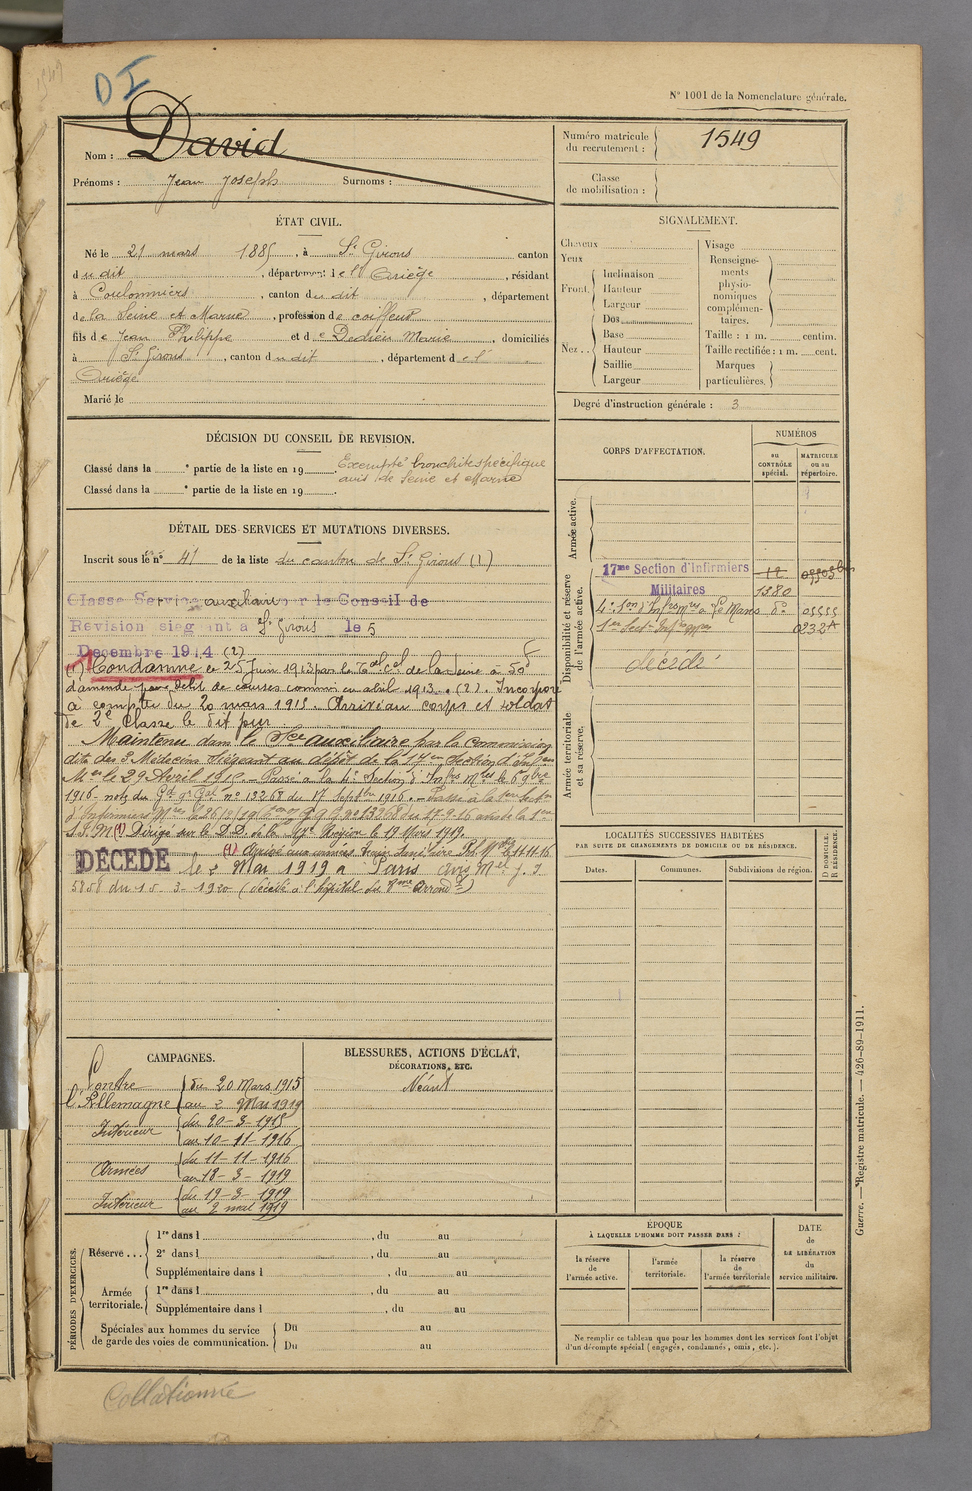 DI
N° 1001 de la Nomenclature générale.
Nom : David
Prénoms : Jean Joseph Surnoms :
Numéro matricule du recrutement : 1549
Classe de mobilisation :
ÉTAT CIVIL.
Né le 21 mars 1885, à St Girons canton
du dit, département de l'Ariège, résidant
à Coulommiers, canton du dit, département
de la Seine et Marne, profession de coiffeur
fils de Jean Philippe et de Dedieu Marie, domiciliés
à St Girons, canton du dit, département de l'
Ariège
Marié le
SIGNALEMENT.
Cheveux
Yeux
Front. Inclinaison
Hauteur
Largeur
Nez .. Dos
Base
Hauteur
Saillie
Largeur
Visage
Renseignements physionomiques complémentaires.
Taille : 1 m. centim.
Taille rectifiée : 1 m. cent.
Marques particulières.
Degré d'instruction générale : 3
DÉCISION DU CONSEIL DE REVISION.
Classé dans la e partie de la liste en 19 . Exempté bronchite spécifique
Classé dans la e partie de la liste en 19 . avis de Seine et Marne
CORPS D'AFFECTATION.
NUMÉROS
au CONTRÔLE spécial.
MATRICULE ou au répertoire.
Armée active.
Disponibilité et réserve de l'armée active.
17me Section d'Infirmiers Militaires
1380
Le Mans
décédé
Armée territoriale et sa réserve.
DÉTAIL DES SERVICES ET MUTATIONS DIVERSES.
Inscrit sous le n° 41 de la liste du canton de St Girons (1)
Classé Service auxiliaire par le Conseil de
Révision siégeant à St Girons le 5
Décembre 1914 (2)
(1) Condamné le 25 Juin 1913 par le Tal Cel de la Seine à 50 F
d'amende pour délit de courses commis en avril 1913. (2). Incorporé
à compter du 20 mars 1915. Arrivé au corps et soldat
de 2e classe le dit jour
Maintenu dans le Sce auxiliaire par la commission
dite des 3 Médecins siégeant au dépôt de la 17e Section d'Infers
Mres le 29 Avril 1915. Passé à la 4e Section d'Infrs Mres le 6 9bre
1916 - note du Gd Qr Gal n° 13268 du 17 Septbre 1916. Passé à la 1ère Sect
S.I.M (1) Dirigé sur le D.D. de la 17e Région le 19 Mars 1919.
DÉCÉDÉ le 2 Mai 1919 à Paris avis Mel J. I
5258 du 15. 3. 1920 (décédé à l'hôpital du
LOCALITÉS SUCCESSIVES HABITÉES
PAR SUITE DE CHANGEMENTS DE DOMICILE OU DE RÉSIDENCE.
Dates.
Communes.
Subdivisions de région.
D DOMICILE.
R RÉSIDENCE.
CAMPAGNES.
Contre l'Allemagne du 20 Mars 1915
au 2 Mai 1919
Intérieur du 20-3-1915
au 10-11-1916
Armées du 11-11-1916
au 18-3-1919
Intérieur du 19-3-1919
au 2 mai 1919
BLESSURES, ACTIONS D'ÉCLAT,
DÉCORATIONS, ETC.
Néant
PÉRIODES D'EXERCICES.
Réserve ... 1re dans l , du au
2e dans l , du au
Supplémentaire dans l , du au
Armée territoriale. 1re dans l , du au
Supplémentaire dans l , du au
Spéciales aux hommes du service de garde des voies de communication. Du au
Du au
ÉPOQUE
À LAQUELLE L'HOMME DOIT PASSER DANS :
la réserve de l'armée active.
l'armée territoriale.
la réserve de l'armée territoriale
DATE de LA LIBÉRATION du service militaire.
Ne remplir ce tableau que pour les hommes dont les services font l'objet
d'un décompte spécial (engagés, condamnés, omis, etc.).
Guerre. — Registre matricule. — 426-89-1911.
Collationné